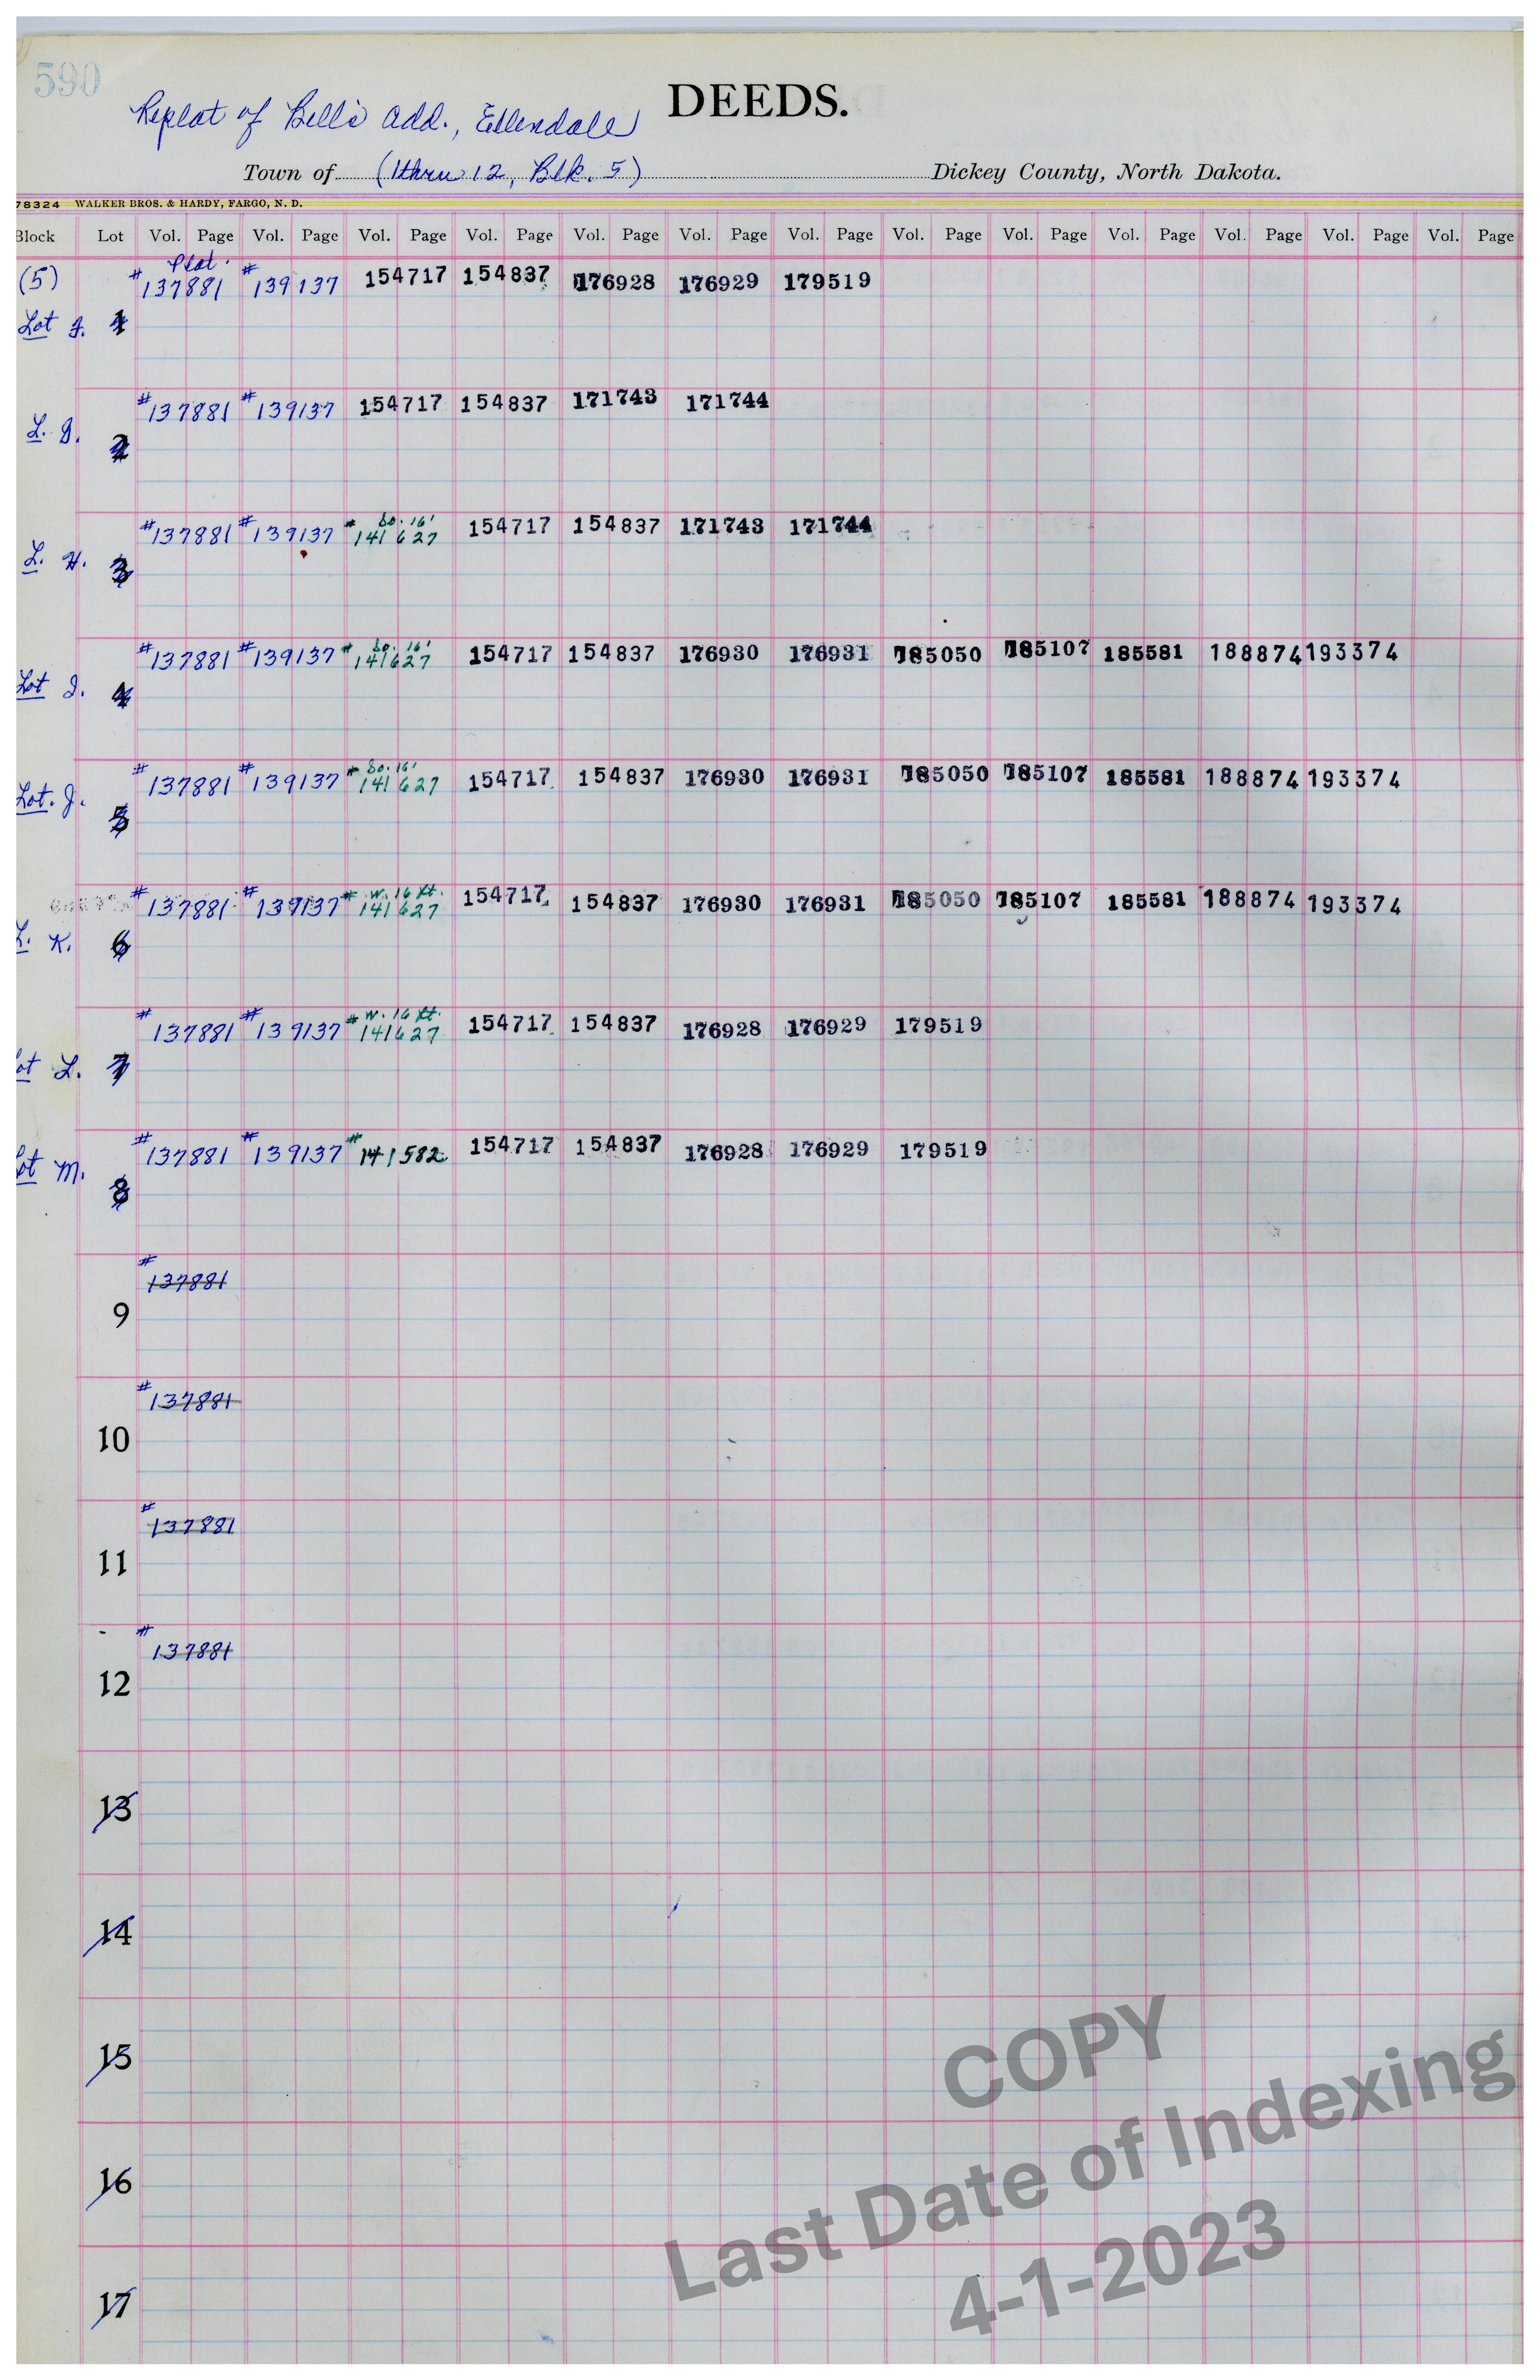 590
DEEDS.
Replat of Bell's Add., Ellendale
Town of (1 thru 12, Blk. 5) Dickey County, North Dakota.
78324 WALKER BROS. & HARDY, FARGO, N. D.
Block Lot Vol. Page Vol. Page Vol. Page Vol. Page Vol. Page Vol. Page Vol. Page Vol. Page Vol. Page Vol. Page Vol. Page Vol. Page Vol. Page
Plat.
(5) #137881 #139137 154717 154837 176928 176929 179519
Lot 1
#137881 #139137 154717 154837 171743 171744
L. 2
So. 16'
#137881 #139137 #141627 154717 154837 171743 171744
L. H. 3
So. 16'
#137881 #139137 #141627 154717 154837 176930 176931 185050 185107 185581 188874 193374
Lot I. 4
So. 16'
#137881 #139137 #141627 154717 154837 176930 176931 185050 185107 185581 188874 193374
Lot. J. 5
W. 16 ft.
#137881 #139137 #141627 154717 154837 176930 176931 185050 185107 185581 188874 193374
L. K. 6
W. 16 ft.
#137881 #139137 #141627 154717 154837 176928 176929 179519
ot L. 7
#137881 #139137 #141582 154717 154837 176928 176929 179519
ot M. 8
#137881
9
#137881
10
#137881
11
#137881
12
13
14
15
16
17
COPY
Last Date of Indexing
4-1-2023